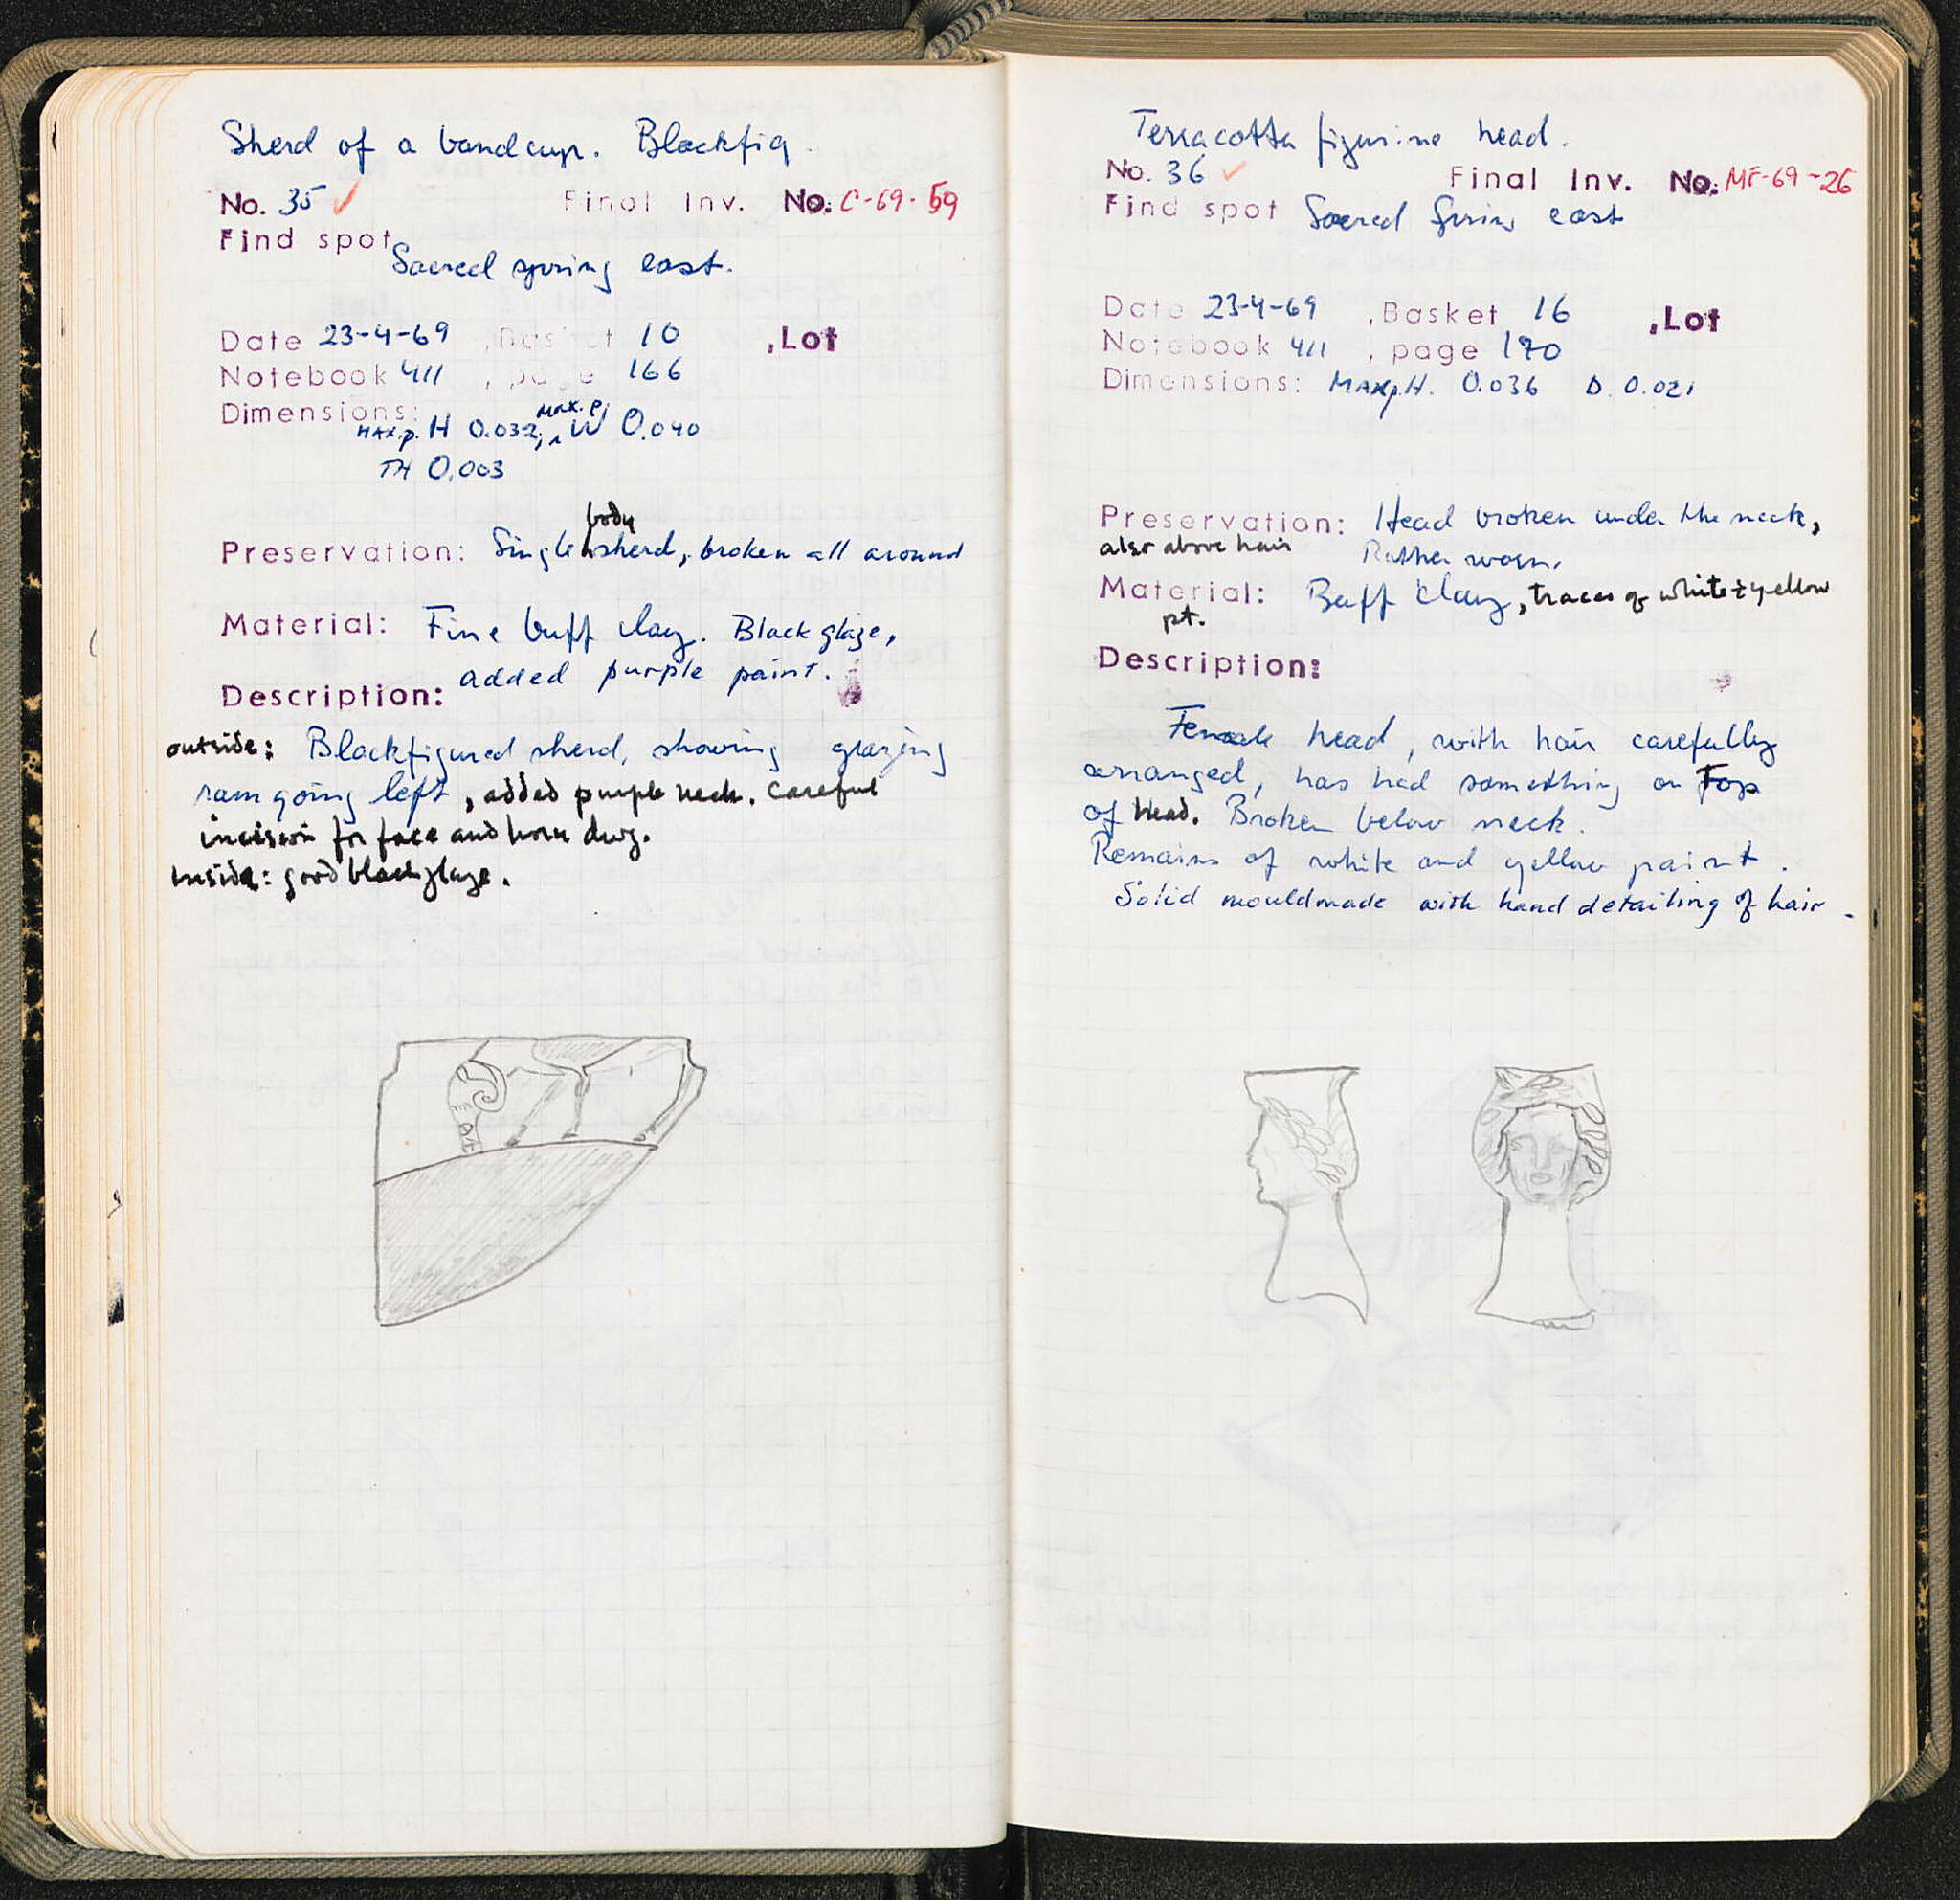 Sherd of a bandcup. Blackfig.
No. 35 ✓ Final Inv. No: C-69-59
Find spot
Sacred spring east.
Date 23-4-69 , Basket 10 , Lot
Notebook 411 , page 166
Dimensions:
Max. p.
Max.p. H 0.032; W 0.040
TH 0.003
body
Preservation: Single sherd, broken all around
Material: Fine buff clay. Black glaze,
added purple paint.
Description:
outside: Blackfigured sherd, showing grazing
ram going left, added purple neck. Careful
incision for face and horn dwg.
inside: good black glaze.
Terracotta figurine head.
No. 36 ✓ Final Inv. No: MF-69-26
Find spot Sacred Spring east
Date 23-4-69 , Basket 16 , Lot
Notebook 411 , page 170
Dimensions: Max p. H. 0.036 D. 0.021
Preservation: Head broken under the neck,
also above hair Rather worn.
Material: Buff clay, traces of white & yellow
pt.
Description:
Female head, with hair carefully
arranged, has had something on Top
of Head. Broken below neck.
Remains of white and yellow paint.
Solid mouldmade with hand detailing of hair.